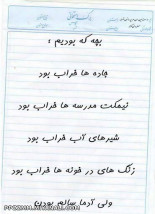 بچه که بودیم :
جاده ها خراب بود
نیمکت مدرسه ها خراب بود
شیرهای آب خراب بود
زنگ های در خونه ها خراب بود
ولی آدما سالم بودن